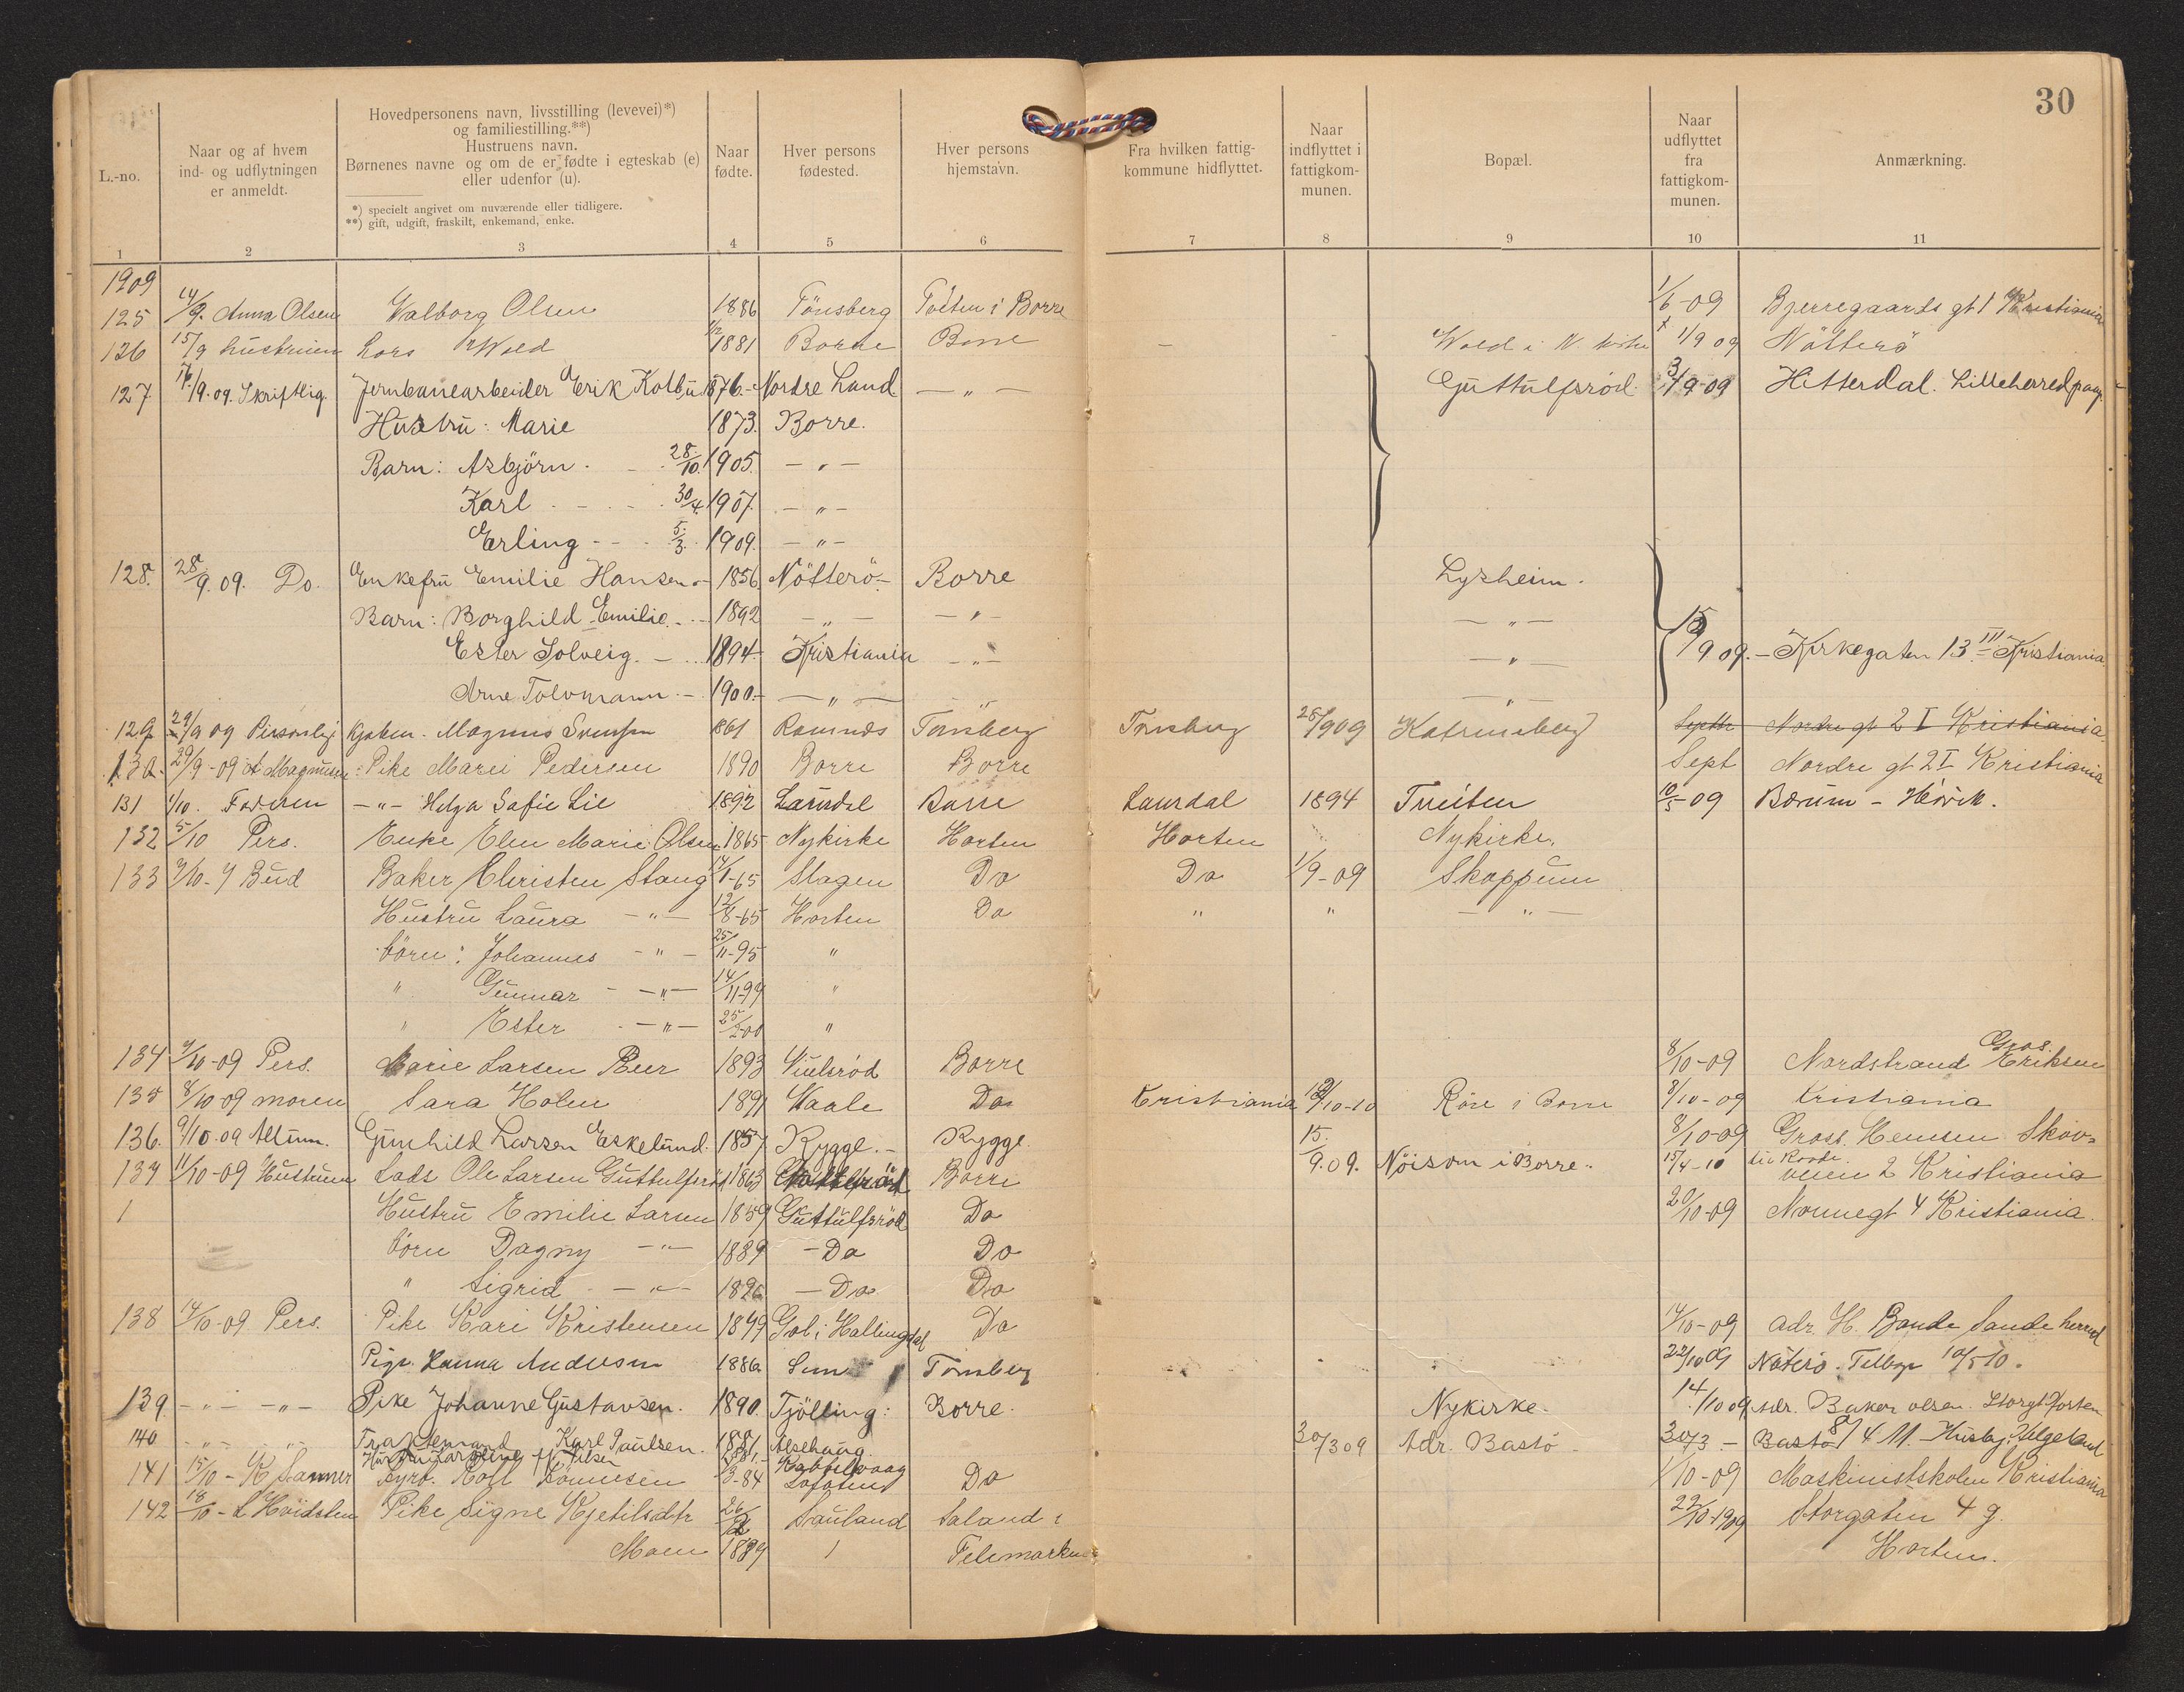 30
L.-no.
Naar og af hvem
ind- og udflytningen
er anmeldt.
Hovedpersonens navn, livsstilling (levevei)*)
og familiestilling.**)
Hustruens navn.
Børnenes navne og om de er fødte i egteskab (e)
eller udenfor (u).
*) specielt angivet om nuværende eller tidligere.
**) gift, ugift, fraskilt, enkemand, enke.
Naar
fødte.
Hver persons
fødested.
Hver persons
hjemstavn.
Fra hvilken fattig-
kommune hidflyttet.
Naar
indflyttet i
fattigkom-
munen.
Bopæl.
Naar
udflyttet
fra
fattigkom-
munen.
Anmærkning.
1 2 3 4 5 6 7 8 9 10 11
1909
125 14/9. Anna Olsen Valborg Olsen 1886 Tönsberg i Borre 1/6-09 Bjerregaards gt 1 Kristiania
126 15/9 hustruen Lars Wold 1881 Borre Borre Wold i N. 1/9 09 Nötterö
127 /9.09. Skriftlig. Jernbanearbeider Erik Kolbu 1876- Nordre Land — " — Guttulfsröd 9-09 Hitterdal. Lilleherred
Hustru: Marie 1873. Borre.
Barn: Asbjörn. 28/10. 1905. — " —
Karl 30/4. 1907. — " —
Erling 5/3. 1909. — " —
128. 28/9. 09. Do. Enkefru Emilie Hansen 1856 Nötterö- Borre Lysheim.
Barn: Borghild Emilie 1892 — " — — " — — " —
Ester Solveig. 1894 Kristiania — " — — " — /9 09.- Kirkegaten 13 III Kristiania.
Arne Tolvmann 1900.- — " — " — " —
129 29/9 09 Personlig Magnus Svensen 1861 Ramnes Tönsberg Tönsberg 28/909 Katrineberg Septb Nordre gt 2 I Kristiania
130. 29/9-09 A Magnusen Pike Marie Pedersen 1890 Borre Borre Sept Nordre gt 2 I Kristiania
131 1/10. Faderen — " — Helga Sofie Lie 1892 Laurdal Borre Laurdal 1894 10/5 09 Bærum - Hövik.
132 5/10 Pers. Enke Elen Marie Olsen 1865 Nykirke Horten Horten Nykirke.
133 7/10- Bud Baker Christen Stang /1-65 Slagen Do Do 1/9-09 Skoppum
Hustru Laura — " — 12/8-65 Horten Do " " — " —
börn: Johannes - " - 25/11-95 "
" Gunnar — " — 14/11-99 "
" Ester — " — 25/2 00 "
134 7/10-09 Pers. Marie Larsen 1893 Borre 8/10-09 Nordstrand Gros. Eriksen
135 8/10 09 moren Sara Holm 1891 Vaale Do Kristiania /10-10 Röre i Borre 8/10-09 Kristiania
136. 9/10.09 Gunhild Larsen Eskelund. 1857 Rygge.- Rygge. 15./9.09. Nöisom i Borre.- 8/10-09 Gross. Hemsen Skov=
137 11/10-09 Hustruen Lods Ole Larsen Guttulfsröd 1863 Borre 15/4-10 veien 2 Kristiania
Hustru Emilie Larsen 1859 Guttulfsröd Do 20/10-09 Nonnegt 4 Kristiania.
börn Dagny — " — 1889 - Do Do
" Sigrid — " — 1896 - Do Do
138 14/10-09 Pers. Pike Kari Kristensen 1849 Gol i Hallingdal Do 14/10-09 adr. H. Bande Sandeherred
Pige. Hanna Andersen 1886. Sem Tönsberg 22/10 09 Nöterö. Tilbage 10/5 10.
139 — " — — " — Pike Johanne Gustavsen. 1890. Tjölling: Borre. Nykirke. 14./10 09 Adr. Baker Olsen. Storgt Horten
140 — " — " Karl Paulsen. 1881. 30/3 09 Adr. Bastö 30/3 - Bastö 8/4 11. Husby, Helgeland
141 15/10 - K Sanner Fyrb. Rolf /3-84 Kabbelvaag Lofoten Do 1/10-09 Maskinistskolen Kristiania
142 18/10 - L Hvidsten Pike Signe Kjetilsdtr 26/ Sauland Saland i 22/10-1909 Storgaten 4 g.
Moen 1889 Telemarken Horten.